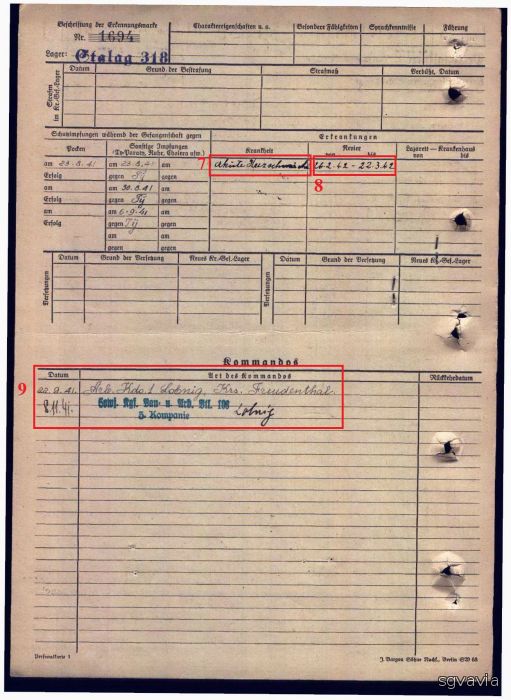 Beschriftung der Erkennungsmarke
Nr. 1694
Lager: Stalag 318
Charaktereigenschaften u. a.
Besondere Fähigkeiten
Sprachkenntnisse
Führung
Strafen im Kr.-Gef.-Lager
Datum
Grund der Bestrafung
Strafmaß
Verbüßt, Datum
Schutzimpfungen während der Gefangenschaft gegen
Erkrankungen
Pocken
Sonstige Impfungen (Ty-Paraty, Ruhr, Cholera usw.)
Krankheit
Revier von bis
Lazarett - Krankenhaus von bis
am 23.8.41 am 23.8.41 am
Erfolg gegen Ty gegen
am am 30.8.41 am
Erfolg gegen Ty gegen
am am 6.9.41 am
Erfolg gegen Ty gegen
am am
gegen gegen
7 Akute Herzschwäche 26.2.42 - 22.3.42
8
Versetzungen
Datum
Grund der Versetzung
Neues Kr.-Gef.-Lager
Versetzungen
Datum
Grund der Versetzung
Neues Kr.-Gef.-Lager
Kommandos
9
Datum
Art des Kommandos
Rückkehrdatum
22.9.41. Arb. Kdo. 1 Lobnig, Krs. Freudenthal.
8.11.41. Kgf. Bau- u. Arb. Btl. 108 Lobnig
Kompanie
Personalkarte I
sgvavia